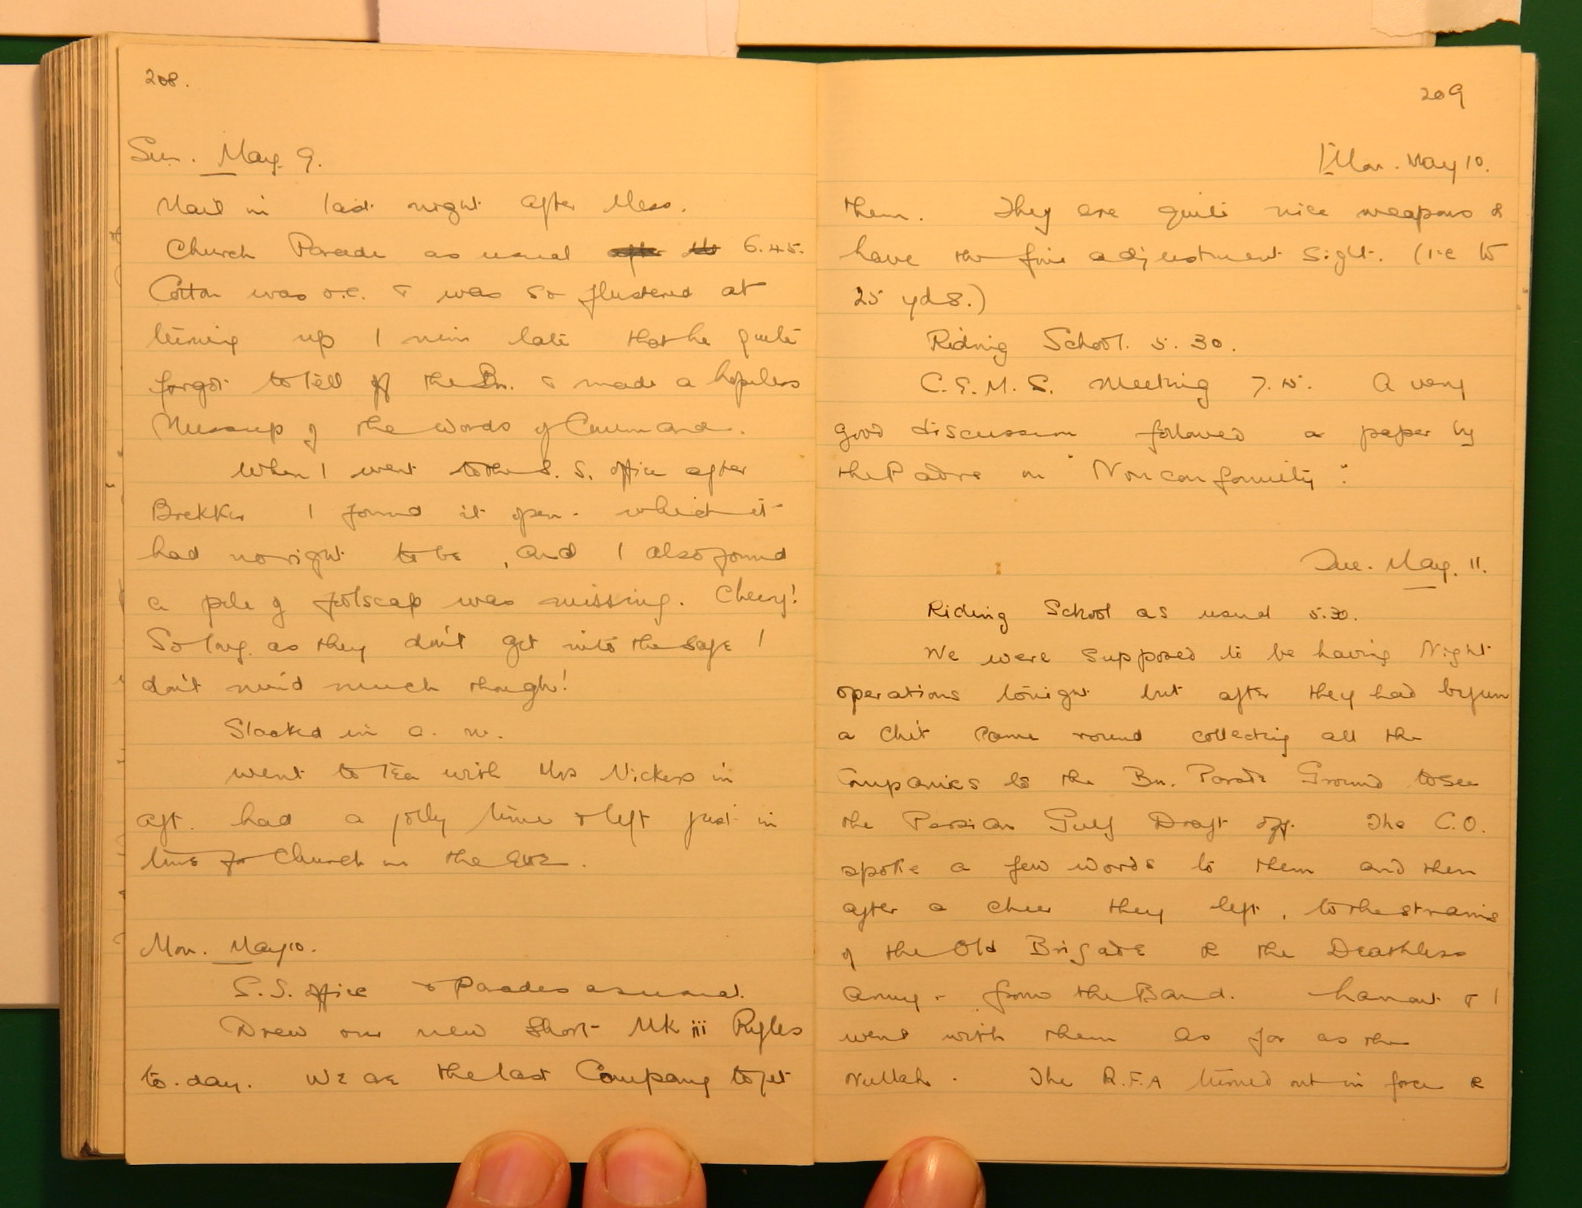 208.
Sun. May 9.
Mail in last night after Mess.
Church Parade as usual 6.45.
Cotton was o.c. & was so flustered at
turning up 1 min late that he quite
forgot to tell off the Bn. & made a hopeless
Messup of the words of Command.
When I went to the S.S. office after
Brekker I found it open - which it
had no right to be, and I also found
a pile of foolscap was missing. Cheery!
So long as they don't get into the safe I
don't mind much though!
Slacked in a.m.
Went to Tea with Mrs Nickess in
aft. had a jolly time & left just in
time for Church in the Eve.
Mon. May 10.
S.S. office & Parades as usual.
Drew our new Short Mk iii Ryfles
to-day. We are the last Company to get
209
Mon. May 10.
them. They are quite nice weapons &
have the fine adjustment Sight. (i.e to
25 yds.)
Riding School. 5.30.
C.E.M.S. Meeting 7.15. A very
good discussion followed a paper by
the Padre on "Nonconformity".
Tue. May. 11.
Riding School as usual 5.30.
We were supposed to be having Night
operations tonight but after they had begun
a Chit came round collecting all the
Companies to the Bn. Parade Ground to see
the Persian Gulf Draft off. The C.O.
spoke a few words to them and then
after a cheer they left, to the strains
of the Old Brigade & the Deathless
Army - from the Band. & I
went with them as far as the
Nullah. The R.F.A turned out in force &